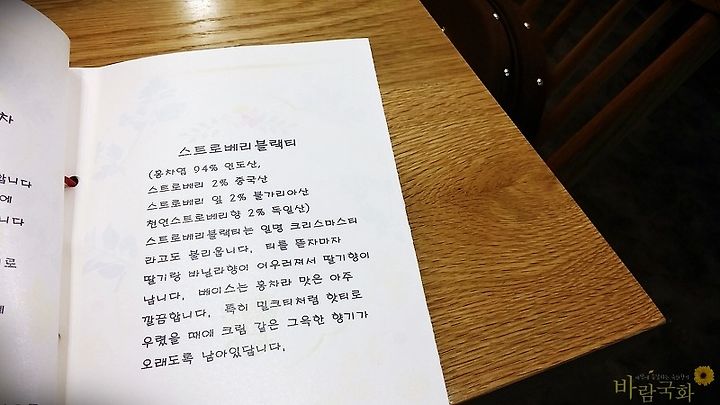 차
합니다
에
니다
로
에
스트로베리블랙티
(홍차엽 94% 인도산,
스트로베리 2% 중국산
스트로베리 잎 2% 불가리아산
천연스트로베리향 2% 독일산)
스트로베리블랙티는 일명 크리스마스티
라고도 불리웁니다. 티를 뜯자마자
딸기랑 바닐라향이 어우러져서 딸기향이
납니다. 베이스는 홍차라 맛은 아주
깔끔합니다. 특히 밀크티처럼 핫티로
우렸을 때에 크림 같은 그윽한 향기가
오래도록 남아있답니다.
바람국화